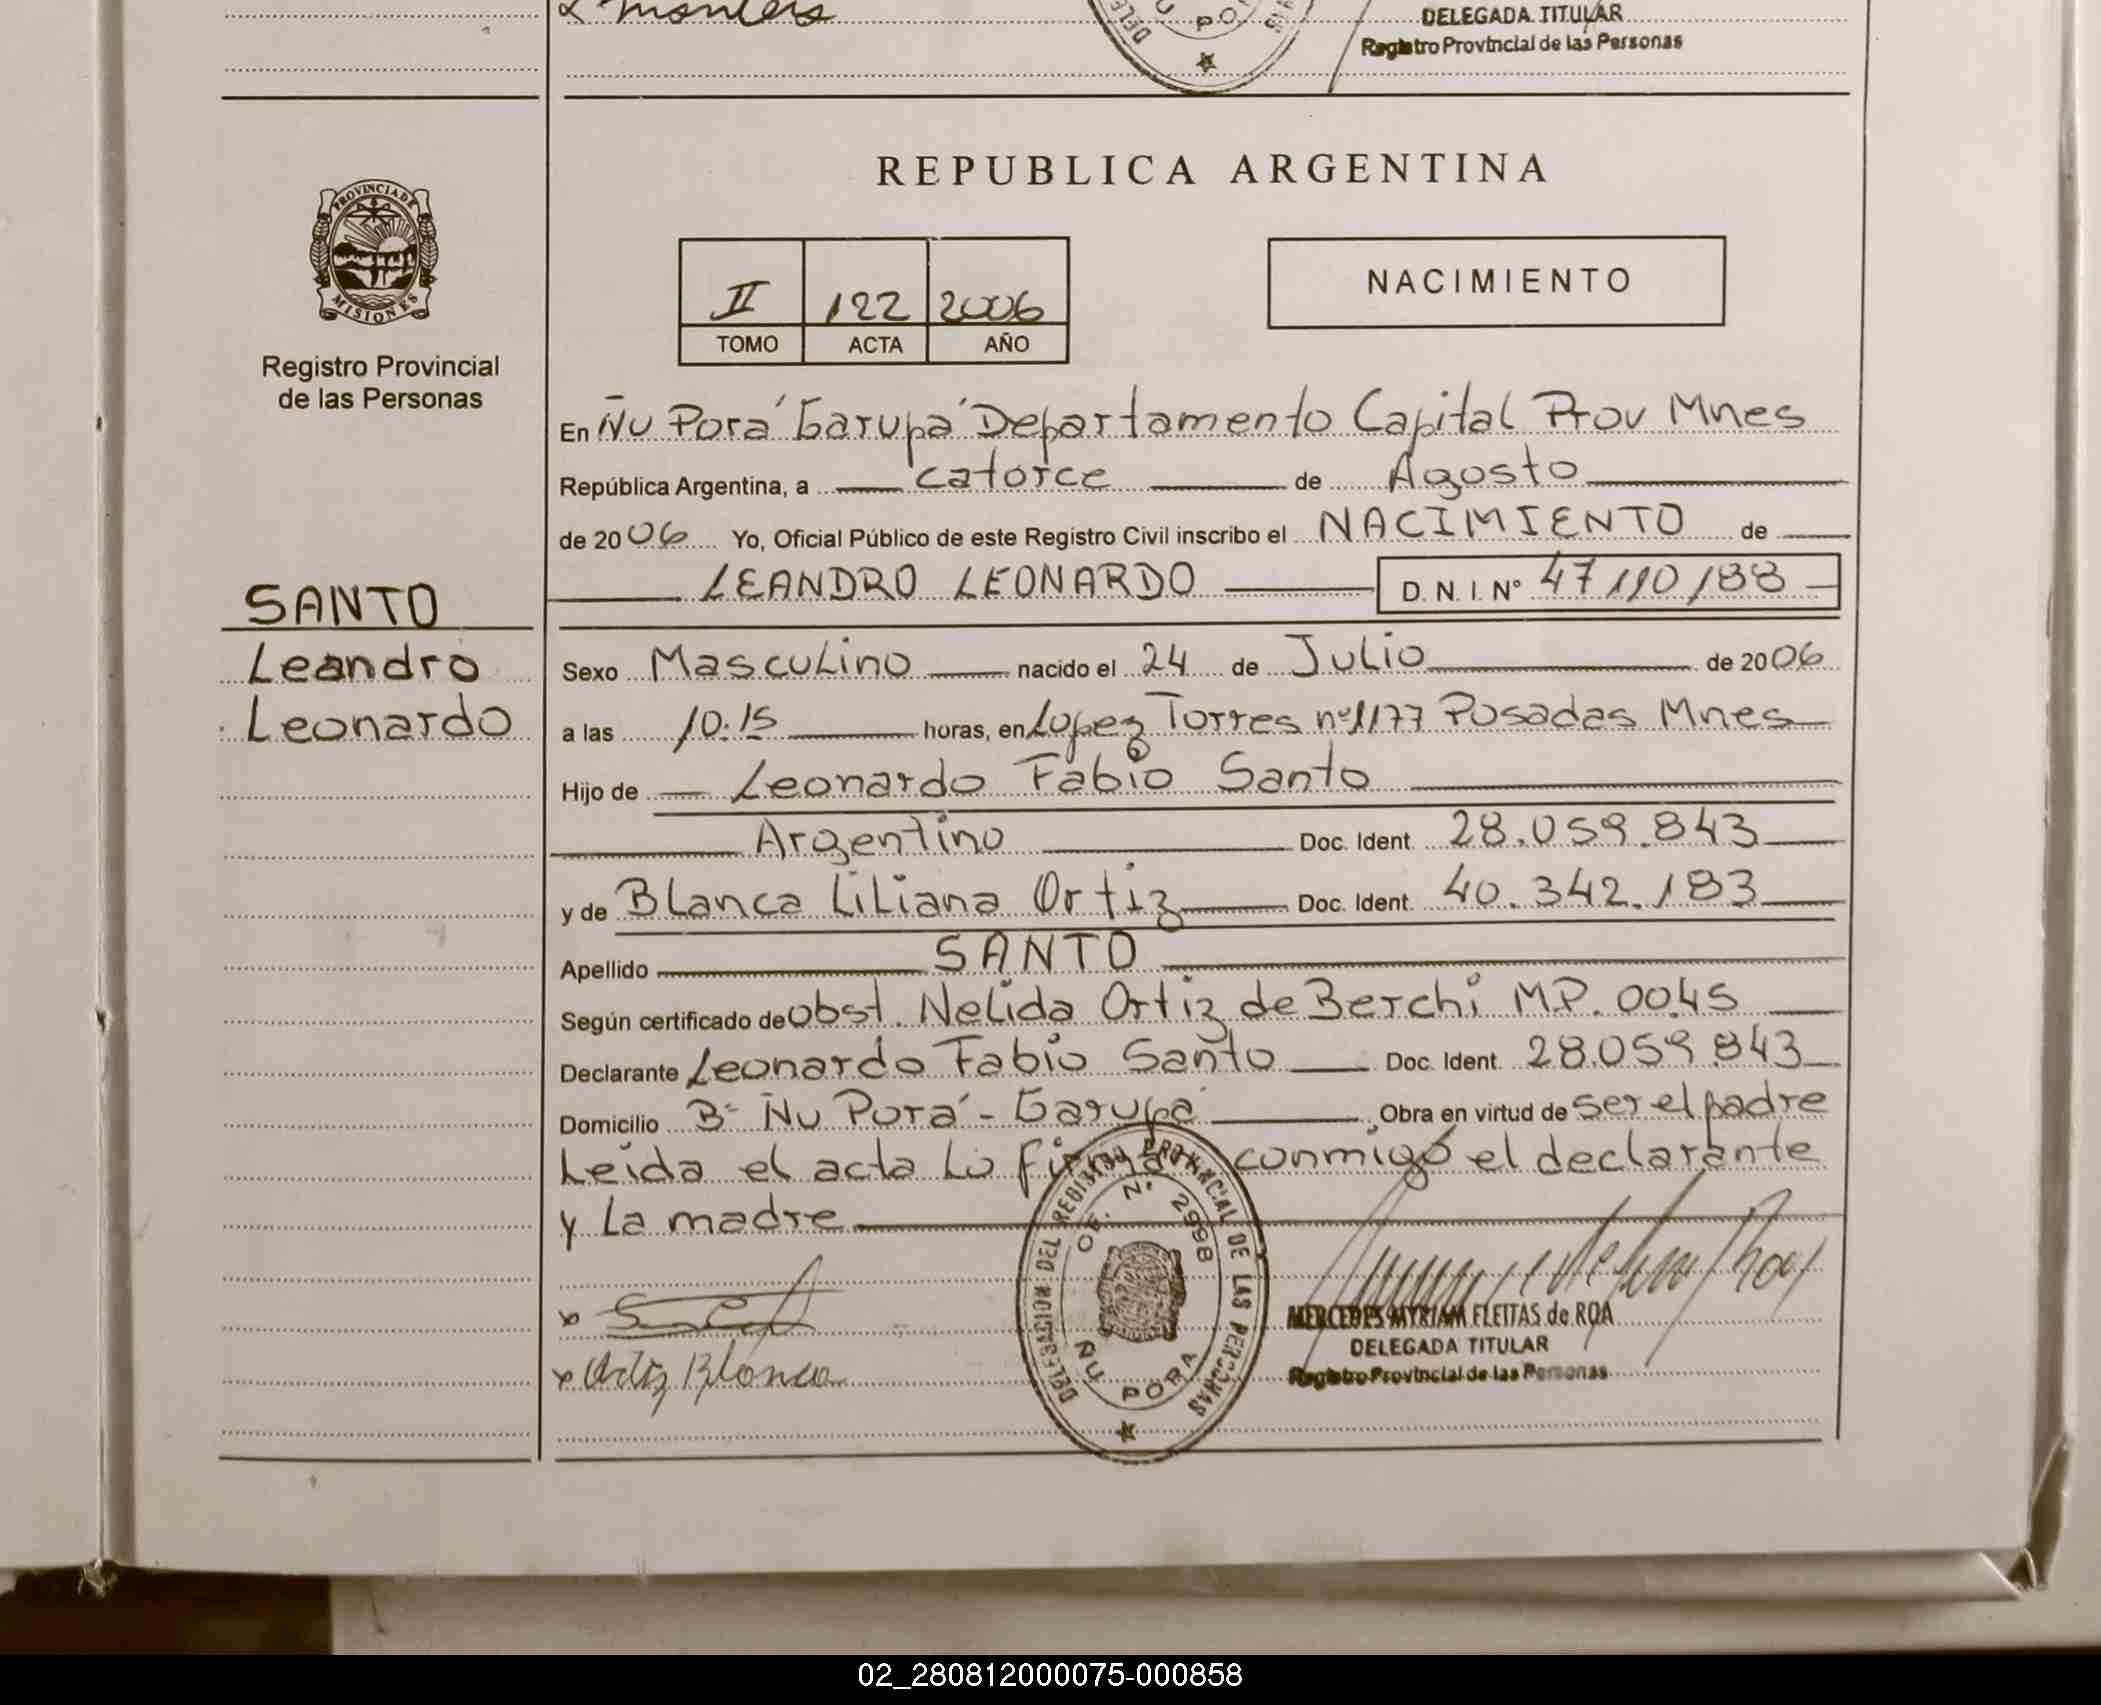 DELEGADA TITULAR
Registro Provincial de las Personas
PROVINCIA DE
MISIONES
Registro Provincial
de las Personas
REPUBLICA ARGENTINA
II 122 2006
TOMO ACTA AÑO
NACIMIENTO
En Ñu Porá Garupá Departamento Capital Prov Mnes
República Argentina, a catorce de Agosto
de 2006 Yo, Oficial Público de este Registro Civil inscribo el NACIMIENTO de
LEANDRO LEONARDO D. N. I. N° 47110188
SANTO
Leandro
Leonardo
Sexo Masculino nacido el 24 de Julio de 2006
a las 10.15 horas, en Lopez Torres nº1177 Posadas Mnes
Hijo de Leonardo Fabio Santo
Argentino Doc. Ident. 28.059.843
y de Blanca Liliana Ortiz Doc. Ident. 40.342.183
Apellido SANTO
Según certificado de obst. Nelida Ortiz de Berchi M.P. 0045
Declarante Leonardo Fabio Santo Doc. Ident. 28.059.843
Domicilio Bº Ñu Porá - Garupá Obra en virtud de ser el padre
Leida el acta La firma conmigo el declarante
y La madre
DELEGACION DEL REGISTRO PROVINCIAL DE LAS PERSONAS
OF. N. 2998
ÑU PORA
MERCEDES MYRIAM FLEITAS de ROA
DELEGADA TITULAR
Registro Provincial de las Personas
x Ortiz Blanca
02_280812000075-000858